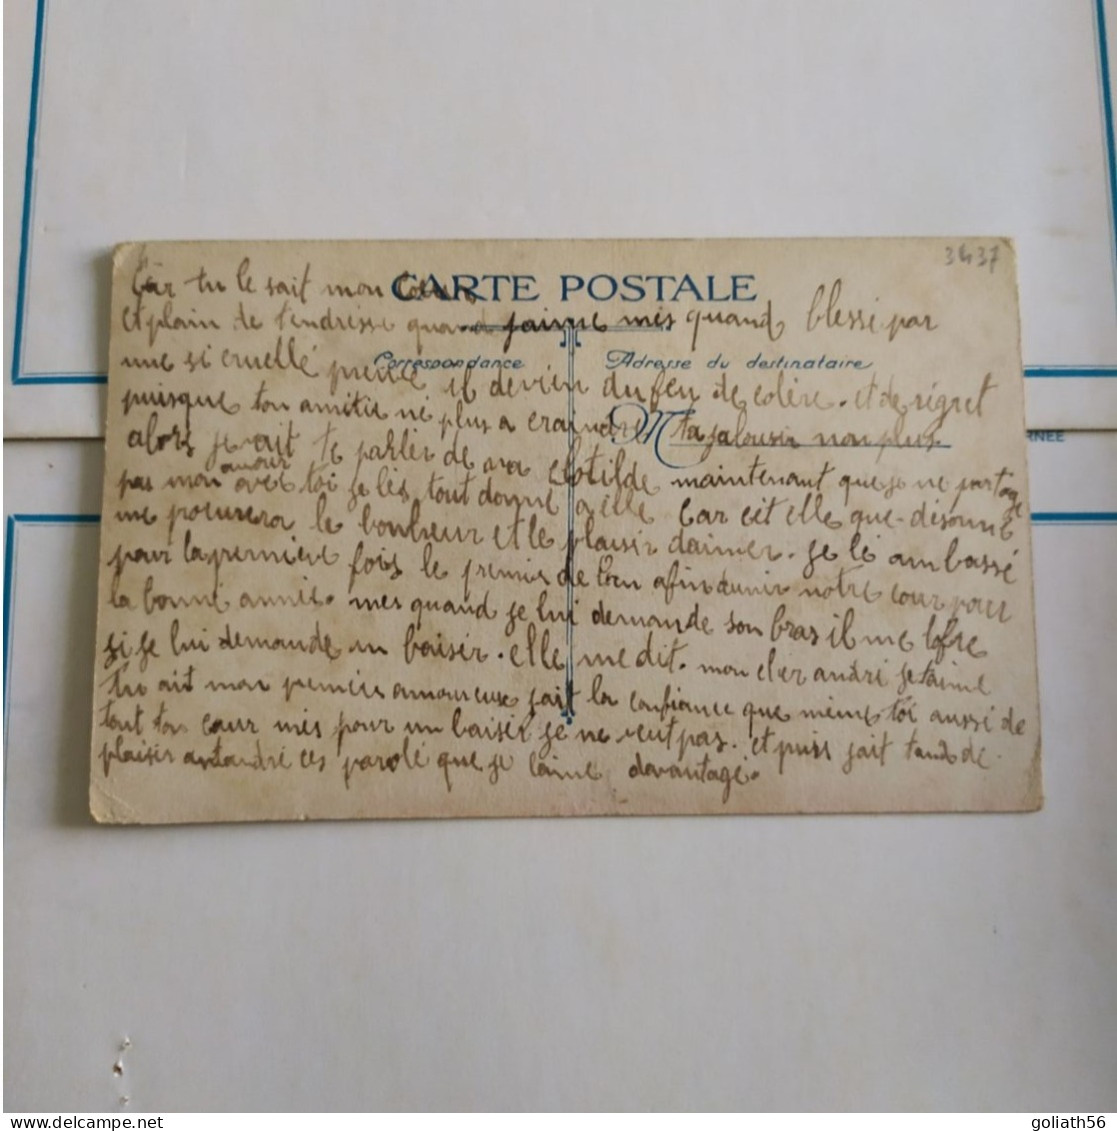 3437
CARTE POSTALE
Correspondance
Adresse du destinataire
M
Car tu le sait mon cœur
et plain de tendrisse quand jaime mes quand blessi par
une si cruellé il devien du feu de colère. et de régret
puisque ton amitié ne plus a craindre ta jalousir non plus
alors je vait te parler de ma Clotilde maintenant que je ne partage
pas mon amour avec toi je lés tout donné a elle Car cét elle que désormé
me procurera le bonheur et le plaisir daimer. je lé ambassé
pour la première fois le premié de lan afin dunir notre cour pour
la bonne année. mes quand je lui demande son bras il me lofre
si je lui demande un baiser. elle me dit. mon cher andré je taime
tu ait mon premier amoureux jait la confiance que même toi aussé de
tout ton cœur mes pour un baiser je ne veut pas. et puis jait tand de
plaisir antandre ces parolé que je laime davantage.
NÉE
goliath56